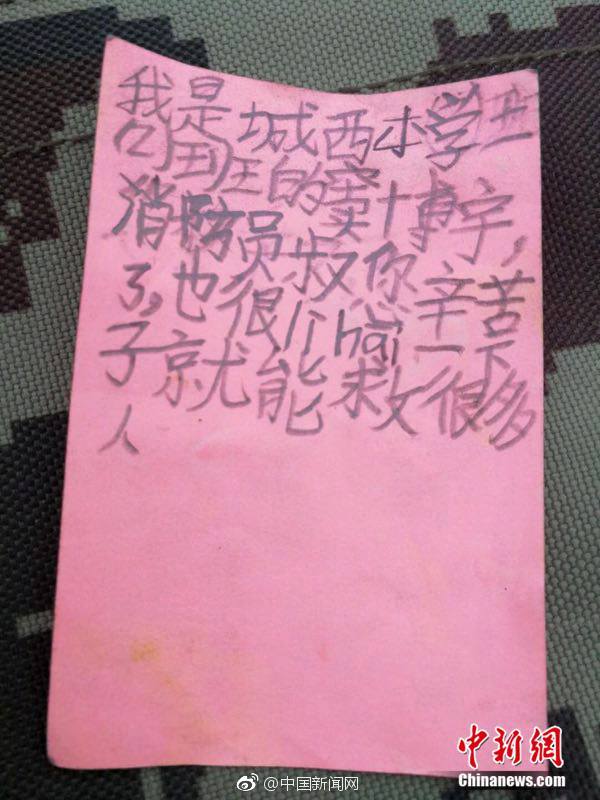 我是城西小学
班的窦博宇,
消防员叔你辛苦
了,也很hai一下
子就能救很多
人
@中国新闻网
中新網
Chinanews.com